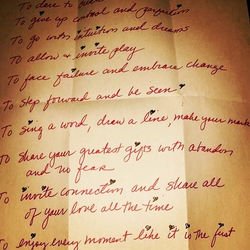 To dare to
To give up control and perfection
To go with intuition and dreams
To allow & invite play
To face failure and embrace change
To step forward and be seen
To sing a word, draw a line, make your mark
To share your greatest gifts with abandon
and no fear
To invite connection and share all
of your love all the time
To enjoy every moment like it is the first